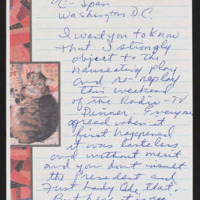 C-Span
Washington D.C.
I want you to know
that I strongly
object to the
nauseating play
and re-replay
this weekend
of the Radio-TV
Dinner. Everyone
agreed when it
first happened
it was tasteless
and without merit
and you don't insult
the President and
First Lady like that.
But here it is